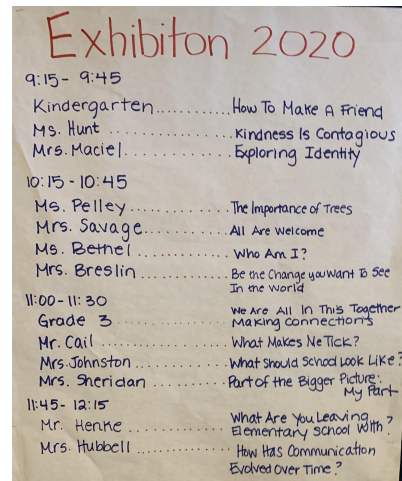 Exhibiton 2020
9:15 - 9:45
Kindergarten........... How To Make A Friend
Ms. Hunt ............... Kindness Is Contagious
Mrs. Maciel............. Exploring Identity
10:15 - 10:45
Ms. Pelley ............. The Importance of Trees
Mrs. Savage............ All Are Welcome
Ms. Bethel ............ Who Am I?
Mrs. Breslin ........... Be the Change you Want To See
In the World
11:00 - 11:30
We Are All In This Together
Grade 3 ............... Making Connections
Mr. Cail ............... What Makes Me Tick?
Mrs. Johnston .......... What Should School Look Like?
Mrs. Sheridan .......... Part of the Bigger Picture:
My Part
11:45 - 12:15
What Are You Leaving
Mr. Henke ............. Elementary School With?
Mrs. Hubbell ............ How Has Communication
Evolved Over Time?